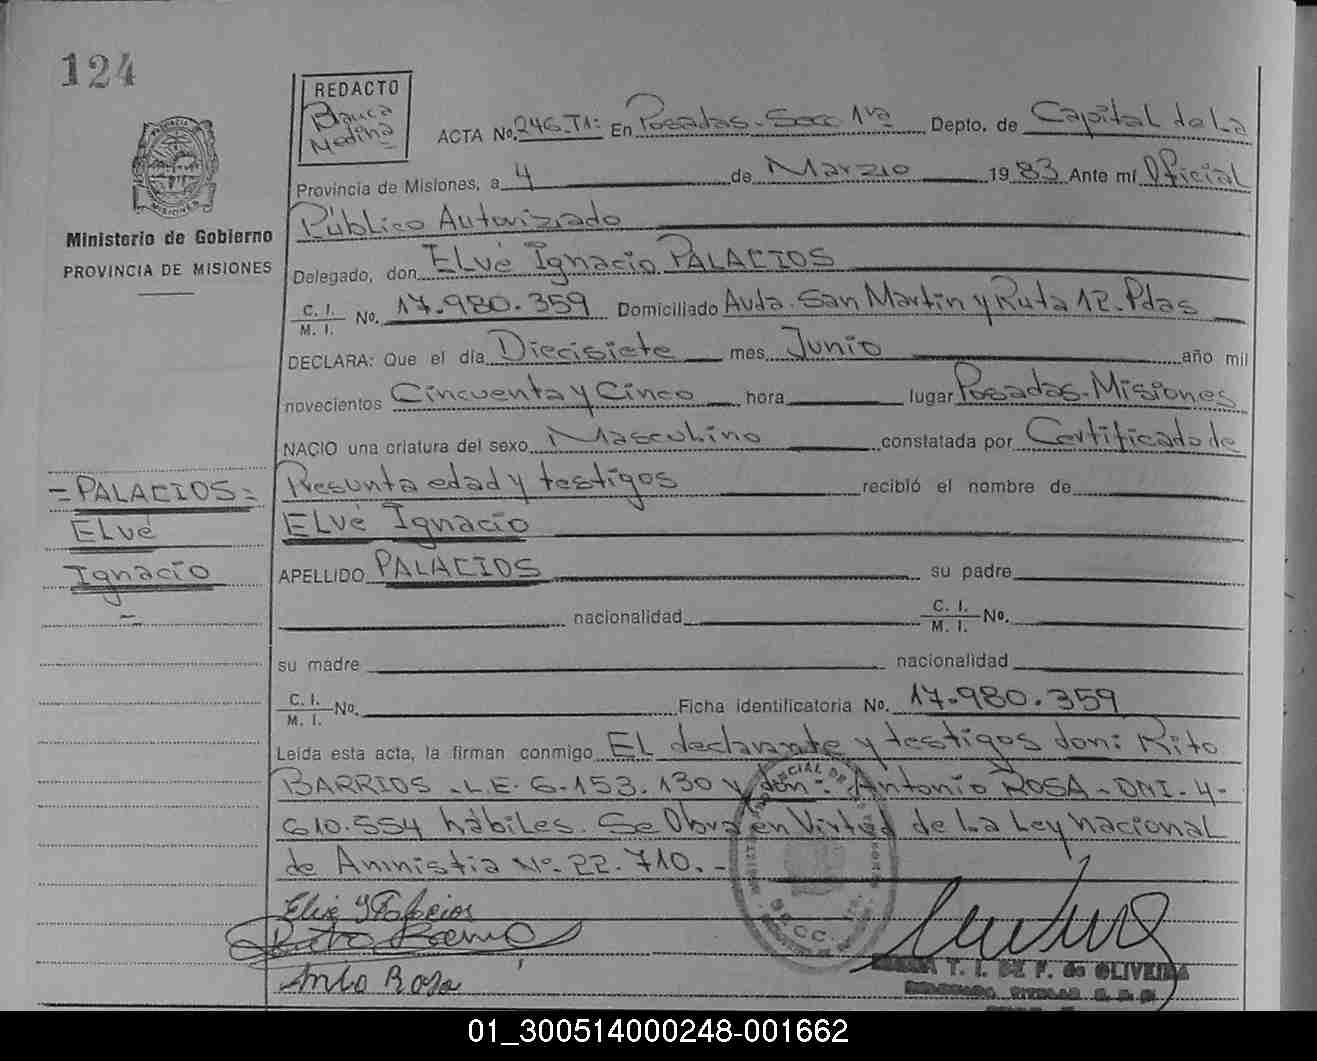 124
REDACTO
Blanca
Medina
ACTA No. 246-T1: En Posadas-Secc 1ra Depto. de Capital de La
PROVINCIA
MISIONES
Provincia de Misiones, a 4 de Marzio 19 83 Ante mí Oficial
Ministerio de Gobierno
PROVINCIA DE MISIONES
Público Autorizado
Delegado, don ELvé Ignacio PALACIOS
C. I. M. I. No. 17.980.359 Domiciliado Avda. San Martín y Ruta 12. Pdas
DECLARA: Que el día Diecisiete mes Junio año mil
novecientos Cincuenta y Cinco hora lugar Posadas-Misiones
NACIO una criatura del sexo Masculino constatada por Certificado de
Presunta edad y testigos recibló el nombre de
ELvé Ignacio
=PALACIOS=
ELvé
Ignacio
APELLIDO PALACIOS su padre
nacionalidad C. I. M. I. No.
su madre nacionalidad
C. I. M. I. No. Ficha identificatoria No. 17.980.359
Leída esta acta, la firman conmigo EL declarante y testigos don: Rito
BARRIOS - L.E. 6.153.130 y don: Antonio ROSA - DNI. 4-
610.554 hábiles. Se Obra en Virtud de La Ley Nacional
de Amnistia Nº. 22.710.-
Elve I Palacios
Anto Rosa
T. I. DE P. de OLIVEIRA
01_300514000248-001662